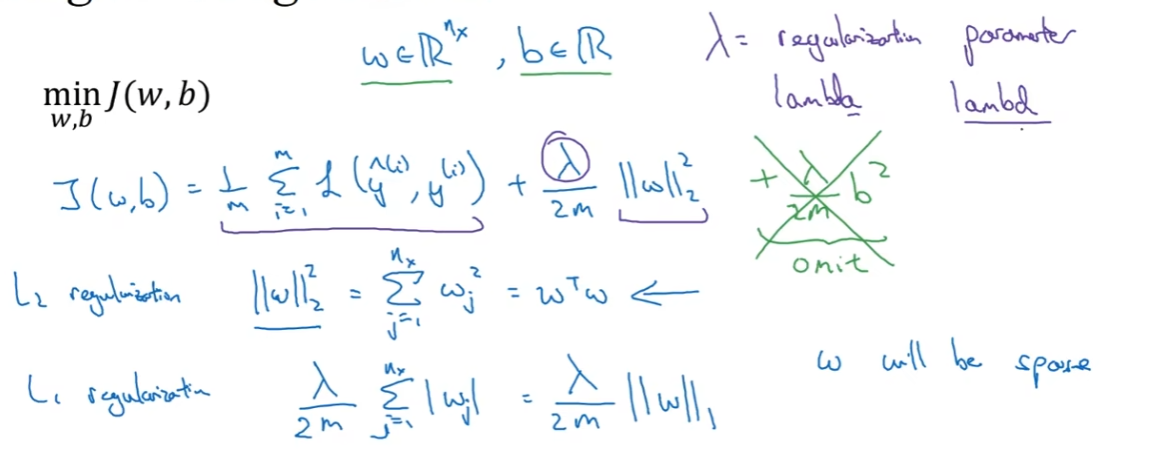 w ∈ ℝ^{n_x}, b ∈ ℝ
λ = regularization parameter
lambda lambd
min_{w,b} J(w, b)
J(w,b) = 1/m Σ_{i=1}^{m} L(ŷ^{(i)}, y^{(i)}) + λ/2m ||w||_2^2 + λ/2m b^2
omit
L_2 regularization ||w||_2^2 = Σ_{j=1}^{n_x} w_j^2 = w^T w ←
L_1 regularization λ/2m Σ_{j=1}^{n_x} |w_j| = λ/2m ||w||_1
w will be sparse